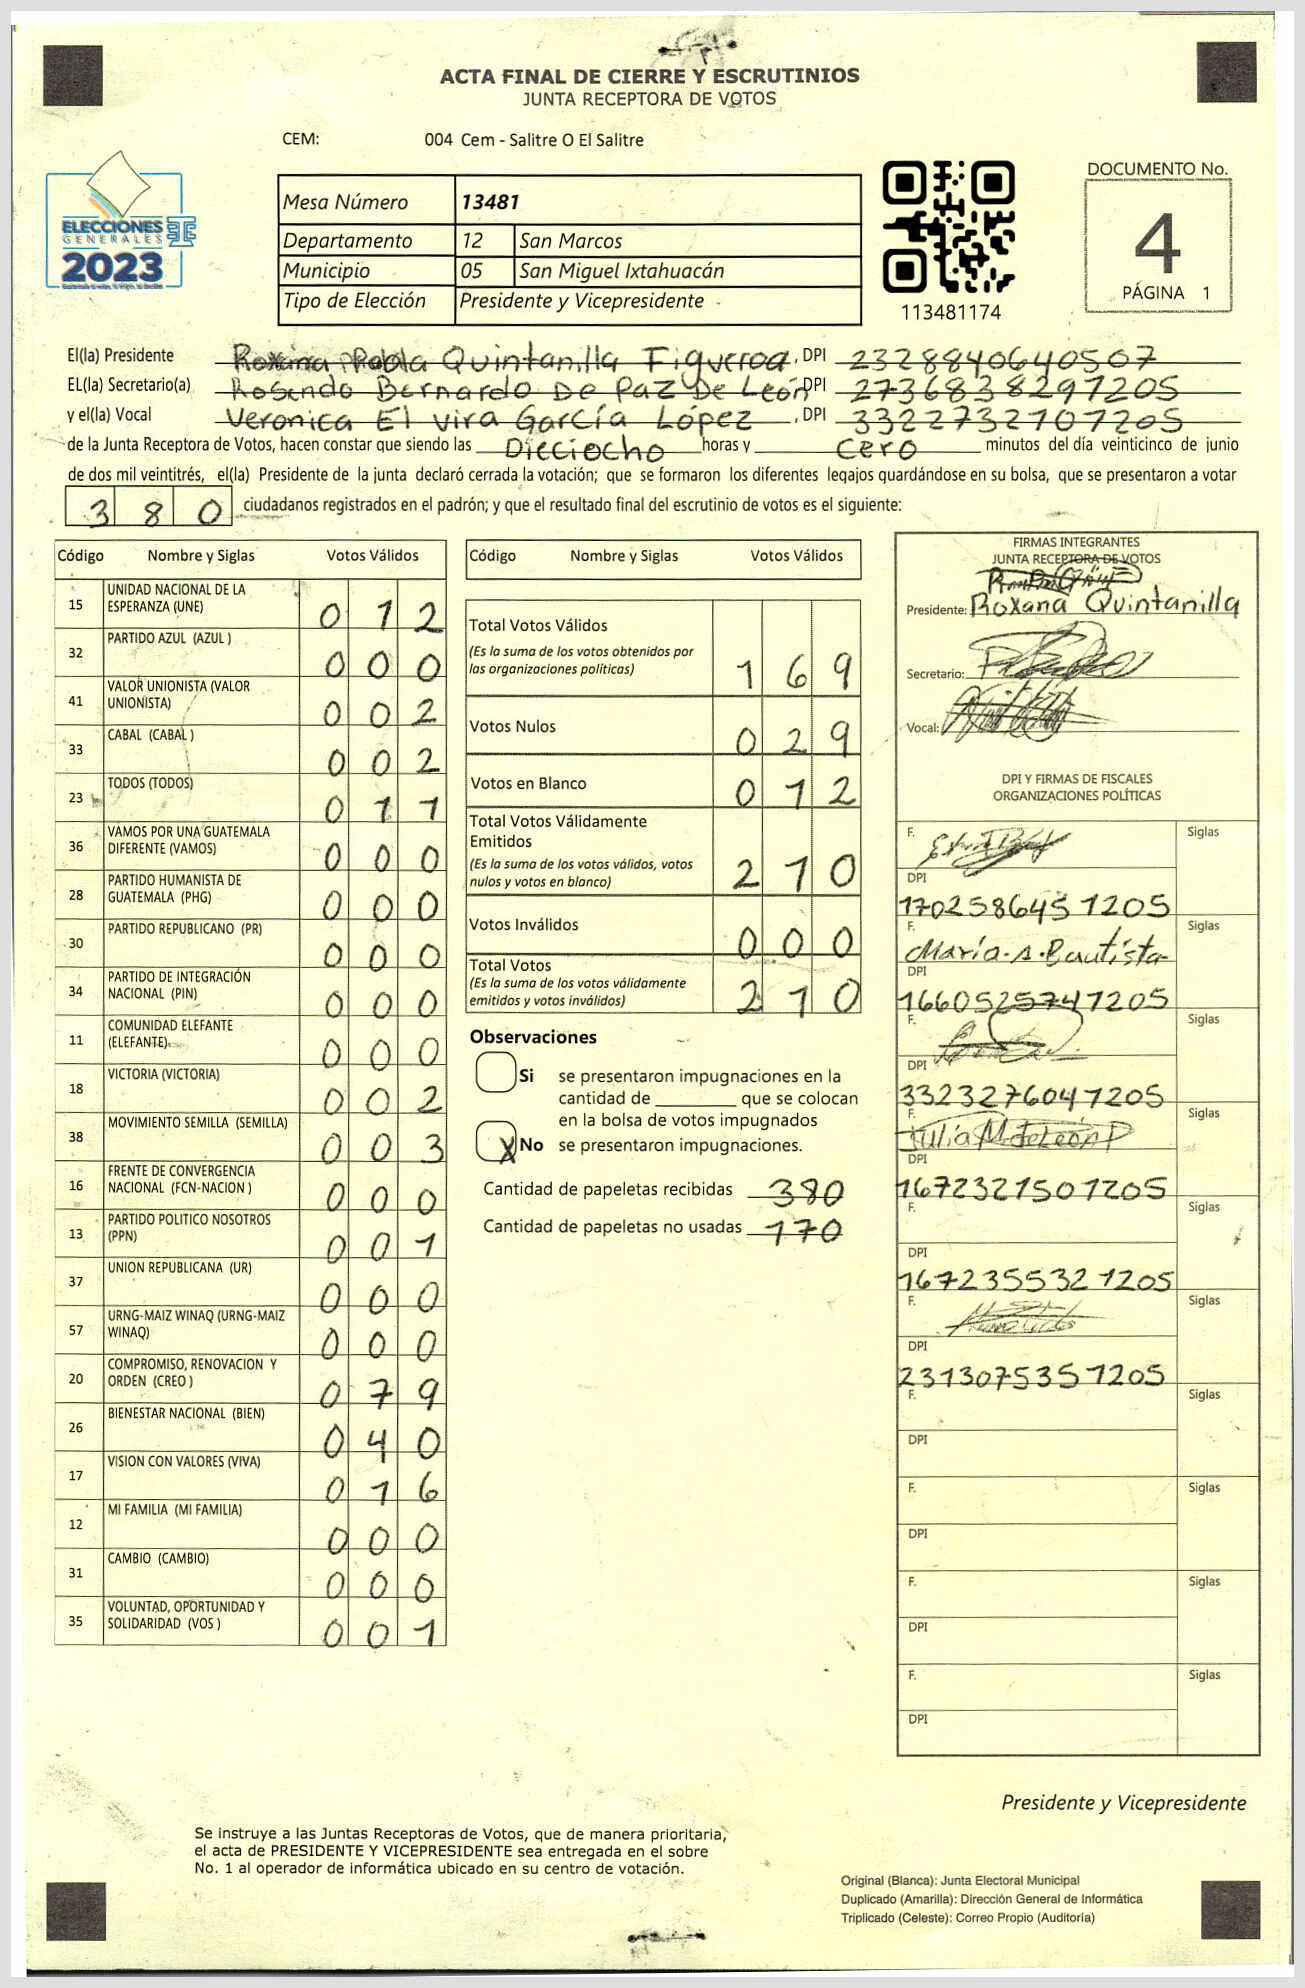 ACTA FINAL DE CIERRE Y ESCRUTINIOS
JUNTA RECEPTORA DE VOTOS
CEM: 004 Cem - Salitre O El Salitre
ELECCIONES
GENERALES
2023
Mesa Número 13481
Departamento 12 San Marcos
Municipio 05 San Miguel Ixtahuacán
Tipo de Elección Presidente y Vicepresidente
113481174
DOCUMENTO No.
4
PÁGINA 1
El(la) Presidente Roxana Quintanilla Figueroa, DPI 2328840640507
EL(la) Secretario(a) Rosendo Bernardo De Paz De León DPI 2736838297205
y el(la) Vocal Veronica El vira García López, DPI 3322732707205
de la Junta Receptora de Votos, hacen constar que siendo las Dieciocho horas y cero minutos del día veinticinco de junio
de dos mil veintitrés, el(la) Presidente de la junta declaró cerrada la votación; que se formaron los diferentes legajos guardándose en su bolsa, que se presentaron a votar
380 ciudadanos registrados en el padrón; y que el resultado final del escrutinio de votos es el siguiente:
Código Nombre y Siglas Votos Válidos
15 UNIDAD NACIONAL DE LA ESPERANZA (UNE) 012
32 PARTIDO AZUL (AZUL ) 000
41 VALOR UNIONISTA (VALOR UNIONISTA) 002
33 CABAL (CABAL ) 002
23 TODOS (TODOS) 011
36 VAMOS POR UNA GUATEMALA DIFERENTE (VAMOS) 000
28 PARTIDO HUMANISTA DE GUATEMALA (PHG) 000
30 PARTIDO REPUBLICANO (PR) 000
34 PARTIDO DE INTEGRACIÓN NACIONAL (PIN) 000
11 COMUNIDAD ELEFANTE (ELEFANTE) 000
18 VICTORIA (VICTORIA) 002
38 MOVIMIENTO SEMILLA (SEMILLA) 003
16 FRENTE DE CONVERGENCIA NACIONAL (FCN-NACION ) 000
13 PARTIDO POLITICO NOSOTROS (PPN) 001
37 UNION REPUBLICANA (UR) 000
57 URNG-MAIZ WINAQ (URNG-MAIZ WINAQ) 000
20 COMPROMISO, RENOVACION Y ORDEN (CREO ) 079
26 BIENESTAR NACIONAL (BIEN) 040
17 VISION CON VALORES (VIVA) 016
12 MI FAMILIA (MI FAMILIA) 000
31 CAMBIO (CAMBIO) 000
35 VOLUNTAD, OPORTUNIDAD Y SOLIDARIDAD (VOS ) 001
Código Nombre y Siglas Votos Válidos
Total Votos Válidos 169
(Es la suma de los votos obtenidos por
las organizaciones políticas)
Votos Nulos 029
Votos en Blanco 012
Total Votos Válidamente
Emitidos 210
(Es la suma de los votos válidos, votos
nulos y votos en blanco)
Votos Inválidos 000
Total Votos 210
(Es la suma de los votos válidamente
emitidos y votos inválidos)
Observaciones
Si se presentaron impugnaciones en la
cantidad de ________ que se colocan
en la bolsa de votos impugnados
X No se presentaron impugnaciones.
Cantidad de papeletas recibidas 380
Cantidad de papeletas no usadas 170
FIRMAS INTEGRANTES
JUNTA RECEPTORA DE VOTOS
Presidente: Roxana Quintanilla
Secretario:
Vocal:
DPI Y FIRMAS DE FISCALES
ORGANIZACIONES POLÍTICAS
F. Siglas
DPI
1702586451205
F. María. A. Bautista Siglas
DPI
1660525741205
F. Siglas
DPI
3323276041205
F. Julia M de León P Siglas
DPI
1672321501205
F. Siglas
DPI
1672355321205
F. Siglas
DPI
2313075351205
F. Siglas
DPI
F. Siglas
DPI
F. Siglas
DPI
F. Siglas
DPI
Presidente y Vicepresidente
Se instruye a las Juntas Receptoras de Votos, que de manera prioritaria,
el acta de PRESIDENTE Y VICEPRESIDENTE sea entregada en el sobre
No. 1 al operador de informática ubicado en su centro de votación.
Original (Blanca): Junta Electoral Municipal
Duplicado (Amarilla): Dirección General de Informática
Triplicado (Celeste): Correo Propio (Auditoría)